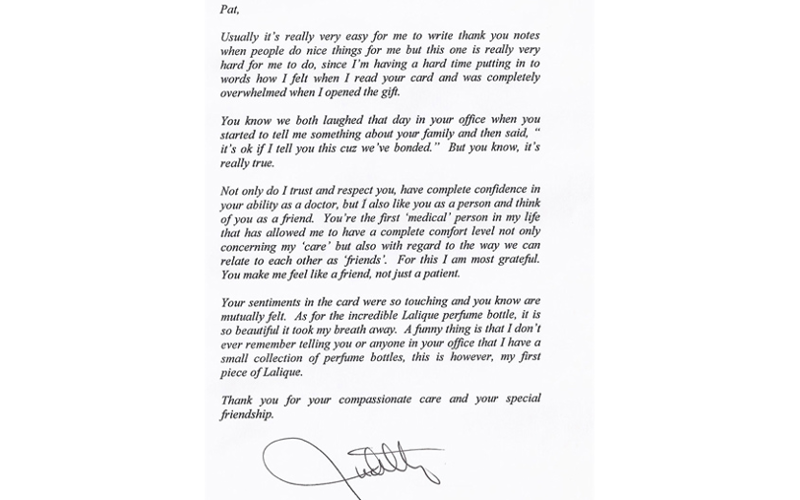 Pat,
Usually it's really very easy for me to write thank you notes
when people do nice things for me but this one is really very
hard for me to do, since I'm having a hard time putting in to
words how I felt when I read your card and was completely
overwhelmed when I opened the gift.
You know we both laughed that day in your office when you
started to tell me something about your family and then said, "
it's ok if I tell you this cuz we've bonded." But you know, it's
really true.
Not only do I trust and respect you, have complete confidence in
your ability as a doctor, but I also like you as a person and think
of you as a friend. You're the first 'medical' person in my life
that has allowed me to have a complete comfort level not only
concerning my 'care' but also with regard to the way we can
relate to each other as 'friends'. For this I am most grateful.
You make me feel like a friend, not just a patient.
Your sentiments in the card were so touching and you know are
mutually felt. As for the incredible Lalique perfume bottle, it is
so beautiful it took my breath away. A funny thing is that I don't
ever remember telling you or anyone in your office that I have a
small collection of perfume bottles, this is however, my first
piece of Lalique.
Thank you for your compassionate care and your special
friendship.